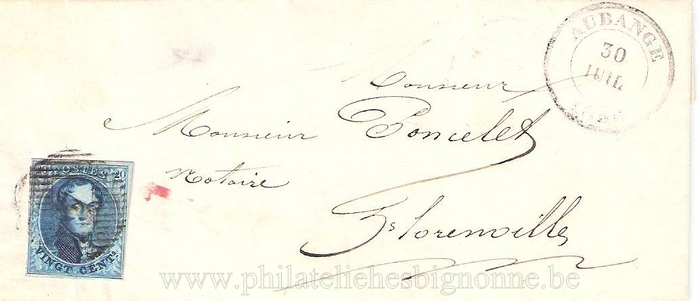 AUBANGE
30
JUIL
Monsieur
Monsieur Poncelet
Notaire
POSTES 20
VINGT CENTS
www.philateliehesbignonne.be